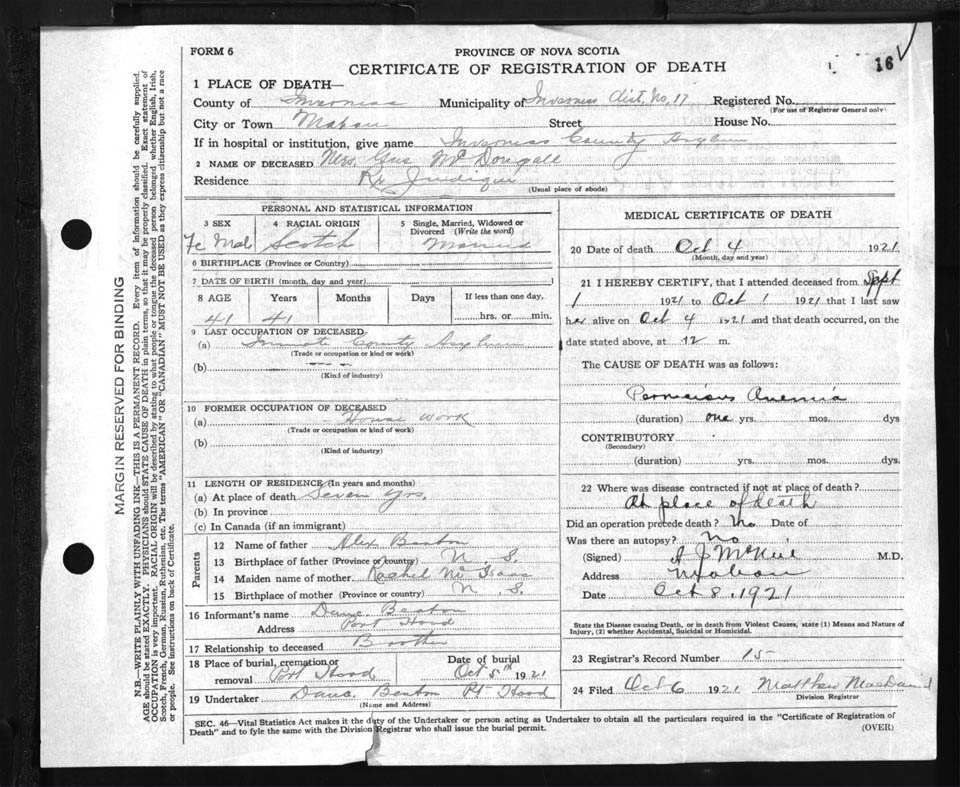 FORM 6
PROVINCE OF NOVA SCOTIA
CERTIFICATE OF REGISTRATION OF DEATH
16
1 PLACE OF DEATH—
County of Inverness Municipality of Inverness Dist. No. 17 Registered No.
(For use of Registrar General only)
City or Town Mabou Street House No.
If in hospital or institution, give name Inverness County Asylum
2 NAME OF DECEASED Mrs. Gus McDougall
Residence Judique
(Usual place of abode)
PERSONAL AND STATISTICAL INFORMATION
3 SEX Fe Mal
4 RACIAL ORIGIN Scotch
5 Single, Married, Widowed or Divorced (Write the word) Married
6 BIRTHPLACE (Province or Country)
7 DATE OF BIRTH (month, day and year)
8 AGE Years Months Days If less than one day,
41 41 hrs. or min.
9 LAST OCCUPATION OF DECEASED
(a) Inmate County Asylum
(Trade or occupation or kind or work)
(b)
(Kind of industry)
10 FORMER OCCUPATION OF DECEASED
(a) House work
(Trade or occupation or kind of work)
(b)
(Kind of industry)
11 LENGTH OF RESIDENCE (In years and months)
(a) At place of death Seven yrs.
(b) In province
(c) In Canada (if an immigrant)
Parents
12 Name of father Alex Beaton
13 Birthplace of father (Province or country) N. S.
14 Maiden name of mother Rachel McIsaac
15 Birthplace of mother (Province or country) N. S.
16 Informant's name Beaton
Address Port Hood
17 Relationship to deceased Brother
18 Place of burial, cremation or removal Port Hood Date of burial Oct 5th 1921
19 Undertaker Beaton Pt Hood
(Name and Address)
MEDICAL CERTIFICATE OF DEATH
20 Date of death Oct 4 1921
(Month, day and year)
21 I HEREBY CERTIFY, that I attended deceased from Sept
1 1921 to Oct 1 1921 that I last saw
her alive on Oct 4 1921 and that death occurred, on the
date stated above, at 12 m.
The CAUSE OF DEATH was as follows:
Pernicious Anemia
(duration) one yrs. mos. dys
CONTRIBUTORY
(Secondary)
(duration) yrs. mos. dys.
22 Where was disease contracted if not at place of death?
At place of death
Did an operation precede death? No Date of
Was there an autopsy? No
(Signed) A J McNeil M.D.
Address Mabou
Date Oct 8. 1921
State the Disease causing Death, or in death from Violent Causes, state (1) Means and Nature of Injury, (2) whether Accidental, Suicidal or Homicidal.
23 Registrar's Record Number 15
24 Filed Oct 6 1921 Matthew
Division Registrar
SEC. 46—Vital Statistics Act makes it the duty of the Undertaker or person acting as Undertaker to obtain all the particulars required in the "Certificate of Registration of
Death" and to fyle the same with the Division Registrar who shall issue the burial permit.
(OVER)
MARGIN RESERVED FOR BINDING
N.B—WRITE PLAINLY WITH UNFADING INK—THIS IS A PERMANENT RECORD. Every item of information should be carefully supplied.
AGE should be stated EXACTLY. PHYSICIANS should STATE CAUSE OF DEATH in plain terms, so that it may be properly classified. Exact statement of
OCCUPATION is very important. RACIAL ORIGIN will be described by stating to what people or tongue the deceased person belonged whether English, Irish,
Scotch, French, German, Russian, Ruthenian, etc. The terms "AMERICAN" OR "CANADIAN" MUST NOT BE USED as they express citizenship but not a race
or people. See instructions on back of Certificate.